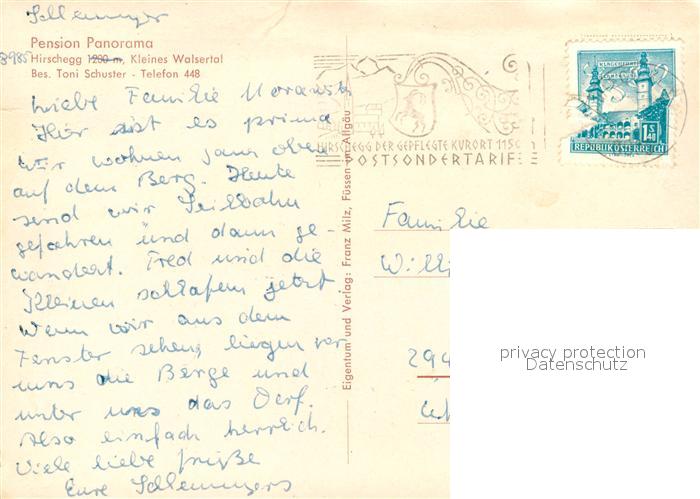 Schlemmger
Pension Panorama
8985 Hirschegg 1200 m, Kleines Walsertal
Bes. Toni Schuster - Telefon 448
Liebe Familie
Hier ist es prima
wir wohnen ganz oben
auf dem Berg. Heute
sind wir Seilbahn
gefahren und dann ge-
wandert. Fred und die
Kleinen schlafen jetzt
Wenn wir aus dem
Fenster sehen, liegen vor
uns die Berge und
unter uns das Dorf.
Also einfach herrlich.
Viele liebe Grüße
Eure
Eigentum und Verlag: Franz Milz, Füssen im Allgäu
HIRSCHEGG DER GEPFLEGTE KURORT 115
POSTSONDERTARIF
1 S 40
REPUBLIK ÖSTERREICH
Familie
Willi
294
privacy protection
Datenschutz